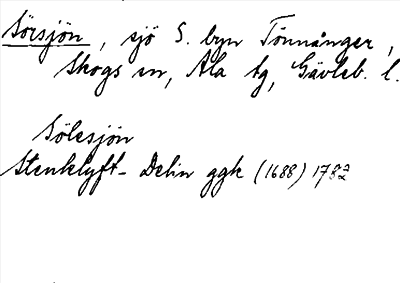 Sörsjön, sjö S. byn Tönnånger,
Skogs sn, Ala tg, Gävleb. l.
Sölesjön
Stenklyft - Delin ggk (1688) 1782